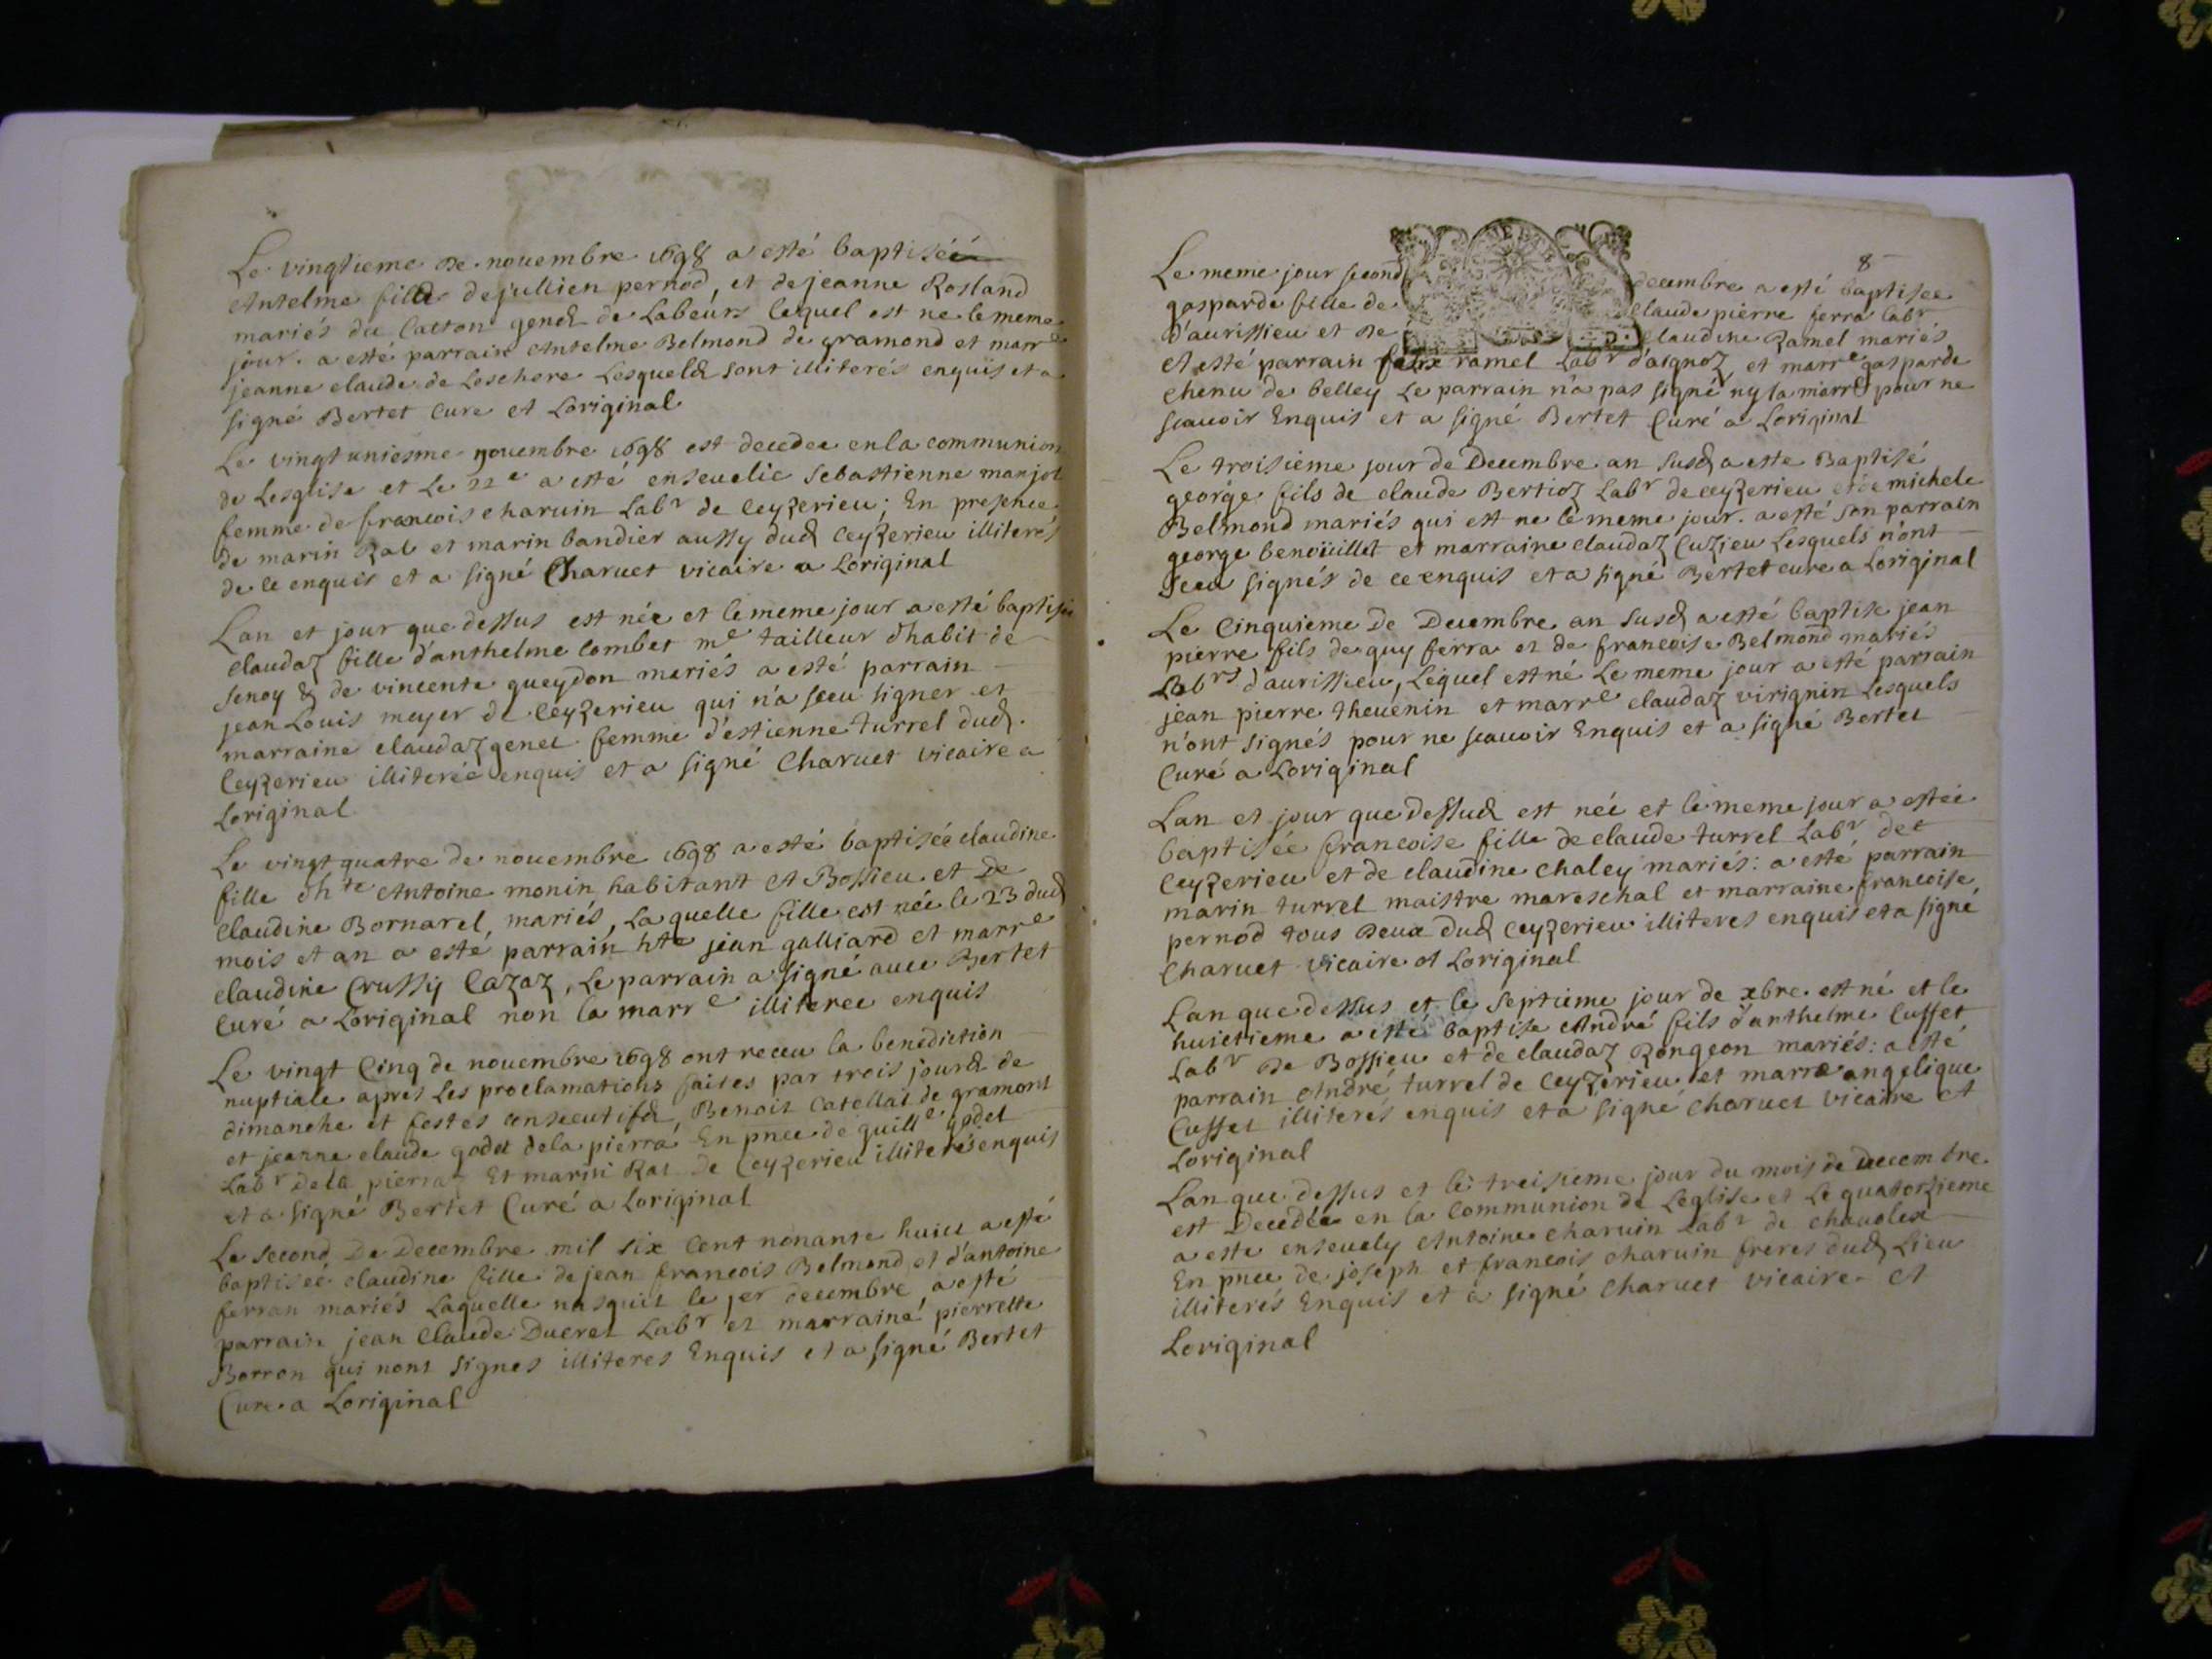 Le vingtieme de nouembre 1698 a esté baptiséé
Antelme fille de jullien pernod, et de jeanne Rosland
mariés du Catton gend de Labeurs lequel est ne le meme
jour. a esté parrain Antelme Belmond de gramond et marre
jeanne claude de Leschere Lesqueld sont illiterés enquis et a
signé Bertet Cure et Loriginal
Le vingt uniesme nouembre 1698 est decedee en la communion
de Lesglise et Le 22e a esté enseuelie Sebastienne manjot
femme de francois charuin Labr de Ceyzerieu; En presence
de marin Rat et marin bandier aussy dud Ceyzerieu illiterés
de ce enquis et a signé Charuet vicaire a Loriginal
Lan et jour que dessus est née et le meme jour a esté baptisée
claudaz fille d'anthelme Combet me tailleur dhabit de
Senoy & de vincente gueydon mariés a esté parrain
jean Louis meyer de Ceyzerieu qui n'a sceu signer et
marraine claudaz genet femme d'estienne turrel dud.
Ceyzerieu illiterée enquis et a signé Charuet vicaire a
Loriginal
Le vingt quatre de nouembre 1698 a esté baptisée claudine
fille dhte Antoine monin habitant A Bossieu et De
claudine Bornarel, mariés, Laquelle fille est née le 23 dud
mois et an a esté parrain hte jean galliard et marre
claudine Crussy Cazaz, Le parrain a signé auec Bertet
Curé a Loriginal non la marre illiteree enquis
Le vingt Cinq de nouembre 1698 ont receu la benediction
nuptiale apres Les proclamations faites par trois jourd de
dimanche et festes consecutifd, Benoit Catellat de gramont
et jeanne claude godet dela pierra, En pnce de guille godet
Labr dela pierraz Et marin Rat de Ceyzerieu illiterés enquis
et a signé Bertet Curé a Loriginal
Le second De Decembre mil six Cent nonante huict a esté
baptiseé claudine fille de jean francois Belmond et d'antoine
ferran mariés Laquelle nasquit le jer decembre a esté
parrain jean Claude Ducret Labr et marraine pierrette
Borron qui nont signes illiteres Enquis et a signé Bertet
Cure a Loriginal
8
Le meme jour second decembre a esté baptisee
gasparde fille de claude pierre ferra Labr
d'aurissieu et de claudine Ramel mariés
A esté parrain ramel Labr d'aignoz, et marre gasparde
chenu de belley Le parrain n'a pas signé ny la marre pour ne
scauoir Enquis et a signé Bertet Curé a Loriginal
Le troisieme jour de Decembre an susd a este Baptisé
george fils de claude Bertioz Labr de ceyzerieu et de michele
Belmond mariés qui est ne le meme jour. a esté son parrain
george benoüillet et marraine claudaz Cuzieu Lesquels n'ont
sceu signés de ce enquis et a signé Bertet cure a Loriginal
Le Cinquieme De Decembre an susd a esté baptise jean
pierre fils de guy ferra et de francoise Belmond mariés
Labrs d'aurissieu, Lequel est né Le meme jour a esté parrain
jean pierre theuenin et marre claudaz virignin Lesquels
n'ont signés pour ne scauoir Enquis et a signé Bertet
Curé a Loriginal
Lan et jour que dessud est née et le meme jour a estée
baptisée francoise fille de claude turrel Labr de
Ceyzerieu et de claudine Chaley mariés: a esté parrain
marin turrel maistre mareschal et marraine francoise
pernod tous deux dud Ceyzerieu illiteres enquis et a signé
Charuet vicaire A Loriginal
Lan que dessus et le septieme jour de xbre est né et le
huictieme a esté baptise André fils d'anthelme Cusset
Labr de Bossieu et de claudaz Rongeon mariés: a esté
parrain André turrel de Ceyzerieu et marre angelique
Cusset illiterés enquis et a signé Charuet vicaire A
Loriginal
Lan que dessus et le treisieme jour du mois de Decembre
est Decedée en la Communion de Leglise et Le quatorzieme
a este enseuely Antoine charuin Labr de chauolex
En pnce de joseph et francois charuin freres dud Lieu
illiterés Enquis et a signé Charuet vicaire A
Loriginal